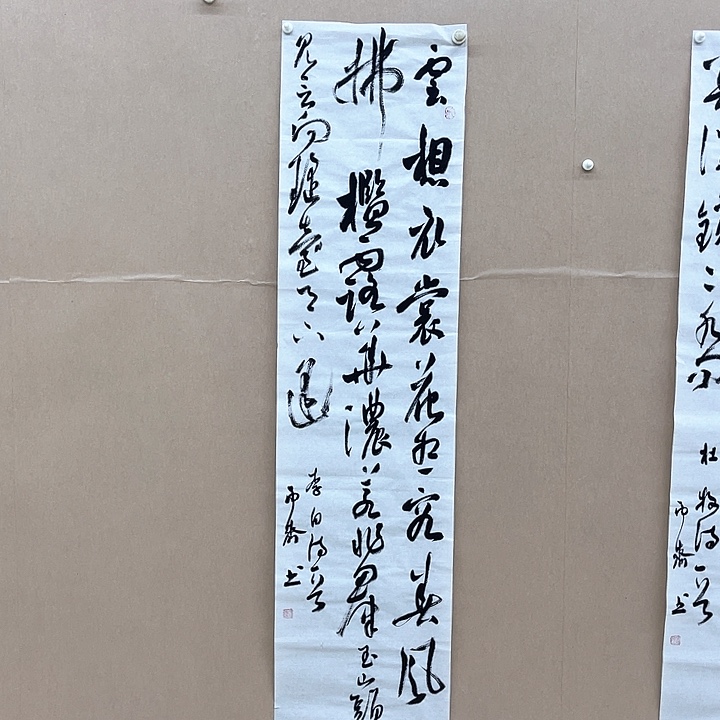 雲想衣裳花想容春風
拂檻露華濃若非群玉山頭
見會向瑤臺月下逢
李白詩一首
雨齋书
杜牧詩一首
雨齋书